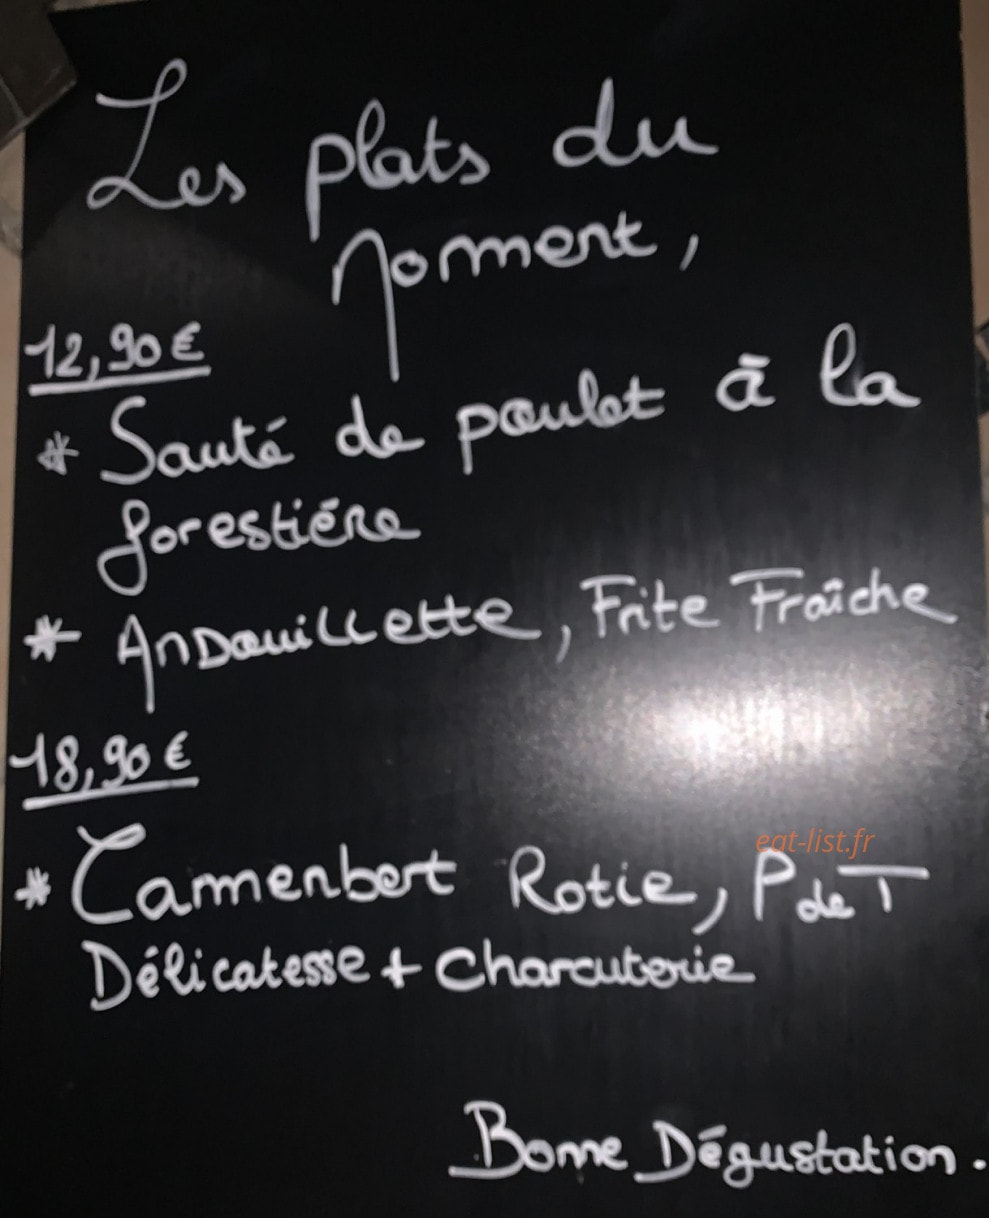 Les plats du
Moment,
12,90€
* Sauté de poulet à la
forestiére
* Andouillette, Frite Fraîche
18,90€
eat-list.fr
* Camenbert Rotie, P de T
Délicatesse + charcuterie
Bonne Dégustation.